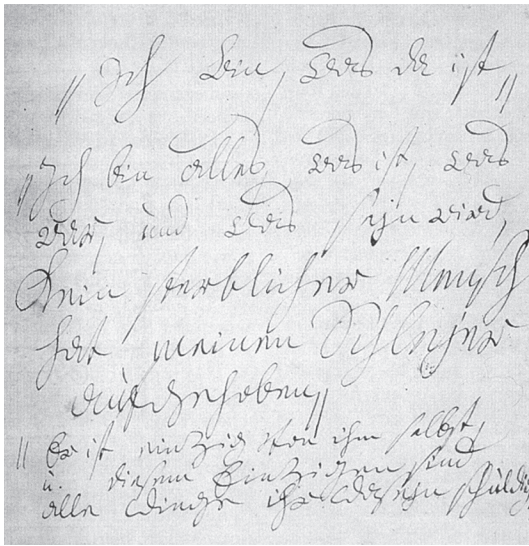 „ Ich bin, Was da ist „
„ Ich bin alles, Was ist, Was
war, und Was seyn wird,
Kein sterblicher Mensch
hat meinen Schleyer
aufgehoben „
„ Er ist einzig von ihm selbst,
u. diesem Einzigen sind
alle Dinge ihr Daseyn schuldig